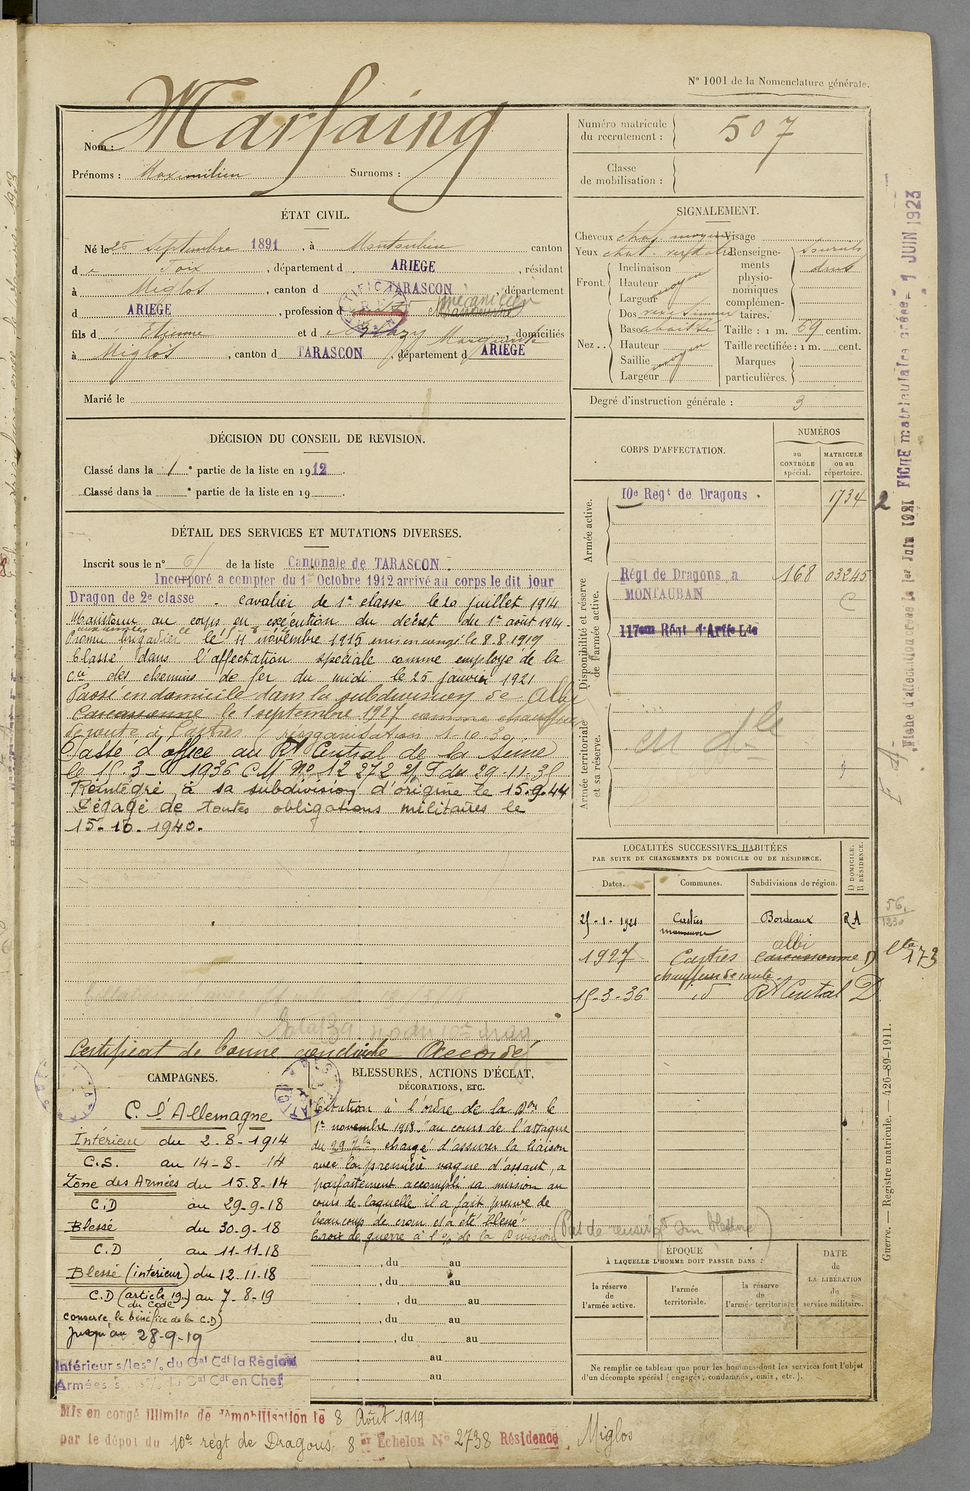 N° 1001 de la Nomenclature générale.
Nom : Marfaing
Prénoms : Maximilien Surnoms :
Numéro matricule du recrutement : 507
Classe de mobilisation :
ÉTAT CIVIL.
Né le 26 septembre 1891, à Montoulieu canton
d e Foix, département d ARIEGE, résidant
à Miglos, canton d TARASCON, département
d ARIEGE, profession d mécanicien
fils d Etienne et d e Marguerite, domiciliés
à Miglos, canton d TARASCON, département d ARIEGE
Marié le
SIGNALEMENT.
Cheveux chat. moyen Visage
Yeux chat.
Front. Inclinaison
Hauteur moyen
Largeur
Nez... Dos
Base abaissée
Hauteur
Saillie moyen
Largeur
Renseignements physionomiques complémentaires. sourcils
Taille : 1 m. 69 centim.
Taille rectifiée : 1 m. cent.
Marques particulières.
Degré d'instruction générale : 3
DÉCISION DU CONSEIL DE REVISION.
Classé dans la 1 e partie de la liste en 1912.
Classé dans la e partie de la liste en 19
DÉTAIL DES SERVICES ET MUTATIONS DIVERSES.
Inscrit sous le n° 61 de la liste Cantonale de TARASCON.
Incorporé a compter du 1er Octobre 1912 arrivé au corps le dit jour
Dragon de 2e classe. cavalier de 1e classe le 20 juillet 1914
Maintenu au corps en exécution du décret du 1er août 1914.
Promu brigadier le 11 novembre 1915 envoi en congé le 8.8.1919
Classé dans l'affectation spéciale comme employé de la
Cie des chemins de fer du midi le 25 janvier 1921
Passé en domicile dans la subdivision de Albi
Carcassonne le 1 septembre 1927 comme chauffeur
de route à Castres
Classé d'office au Rt Central de la Seine
le 15-3-1936 C.M N° 12 272 2/T du 29-11-35
Réintégré à sa subdivision d'origine le 15.9.44
Dégagé de toutes obligations militaires le
15.10.1940.
Certificat de bonne conduite Accordé
CORPS D'AFFECTATION.
NUMÉROS
au CONTRÔLE spécial.
MATRICULE ou au répertoire.
Armée active.
10e Regt de Dragons. 1734
Disponibilité et réserve de l'armée active.
Régt de Dragons a MONTAUBAN 168 03245
C
117eme Régt d'Artie Lde
Armée territoriale et sa réserve.
en dle
LOCALITÉS SUCCESSIVES HABITÉES
PAR SUITE DE CHANGEMENTS DE DOMICILE OU DE RÉSIDENCE.
Dates. Communes. Subdivisions de région. D DOMICILE. R RÉSIDENCE.
25-1-1921 Castres Bordeaux RA
1927 Castres Albi Carcassonne D
chauffeur de route
15-3-36 id Rt Central D
CAMPAGNES.
C. l'Allemagne
Intérieur du 2-8-1914
C.S. au 14-8-14
Zone des Armées du 15.8.14
C.D au 29-9-18
Blessé du 30-9-18
C.D au 11-11-18
Blessé (intérieur) du 12.11-18
C.D (article 19 du code) au 7-8-19
conserve le bénéfice de la C.D)
jusqu'au 28-9-19
Intérieur s/les o/ du Gal Cdt la Région
Armées s/les o/ du Gal Cdt en Chef
BLESSURES, ACTIONS D'ÉCLAT,
DÉCORATIONS, ETC.
Citation à l'ordre de la Don le
1er novembre 1918. "au cours de l'attaque
du 29 7bre chargé d'assurer la liaison
avec la première vague d'assaut, a
parfaitement accompli sa mission au
cours de laquelle il a fait preuve de
beaucoup de cran et a été blessé"
Croix de guerre à l'o/ de la Division
(Pas de renseigts sur blessure)
, du au
, du au
, du au
, du au
, du au
au
au
ÉPOQUE
À LAQUELLE L'HOMME DOIT PASSER DANS :
la réserve de l'armée active.
l'armée territoriale.
la réserve de l'armée territoriale
DATE de LA LIBÉRATION du service militaire.
Ne remplir ce tableau que pour les hommes dont les services font l'objet
d'un décompte spécial (engagés, condamnés, omis, etc.).
Mis en congé illimité de démobilisation le 8 Août 1919
par le dépôt du 10e régt de Dragons 8 er Echelon N° 2738 Résidence Miglos
Guerre. — Registre matricule. — 426-89-1911.
FICHE matriculaire créée 1 JUIN 1923
Fiche d'affectation créée le 1er Juin 1921
56.
173